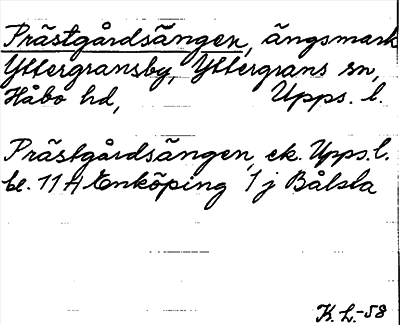 Prästgårdsängen, ängsmark
Yttergransby, Yttergrans sn,
Håbo hd, Upps. l.
Prästgårdsängen, ek. Upps. l.
bl. 11 A Enköping 1 j Bålsta
K. L.-58